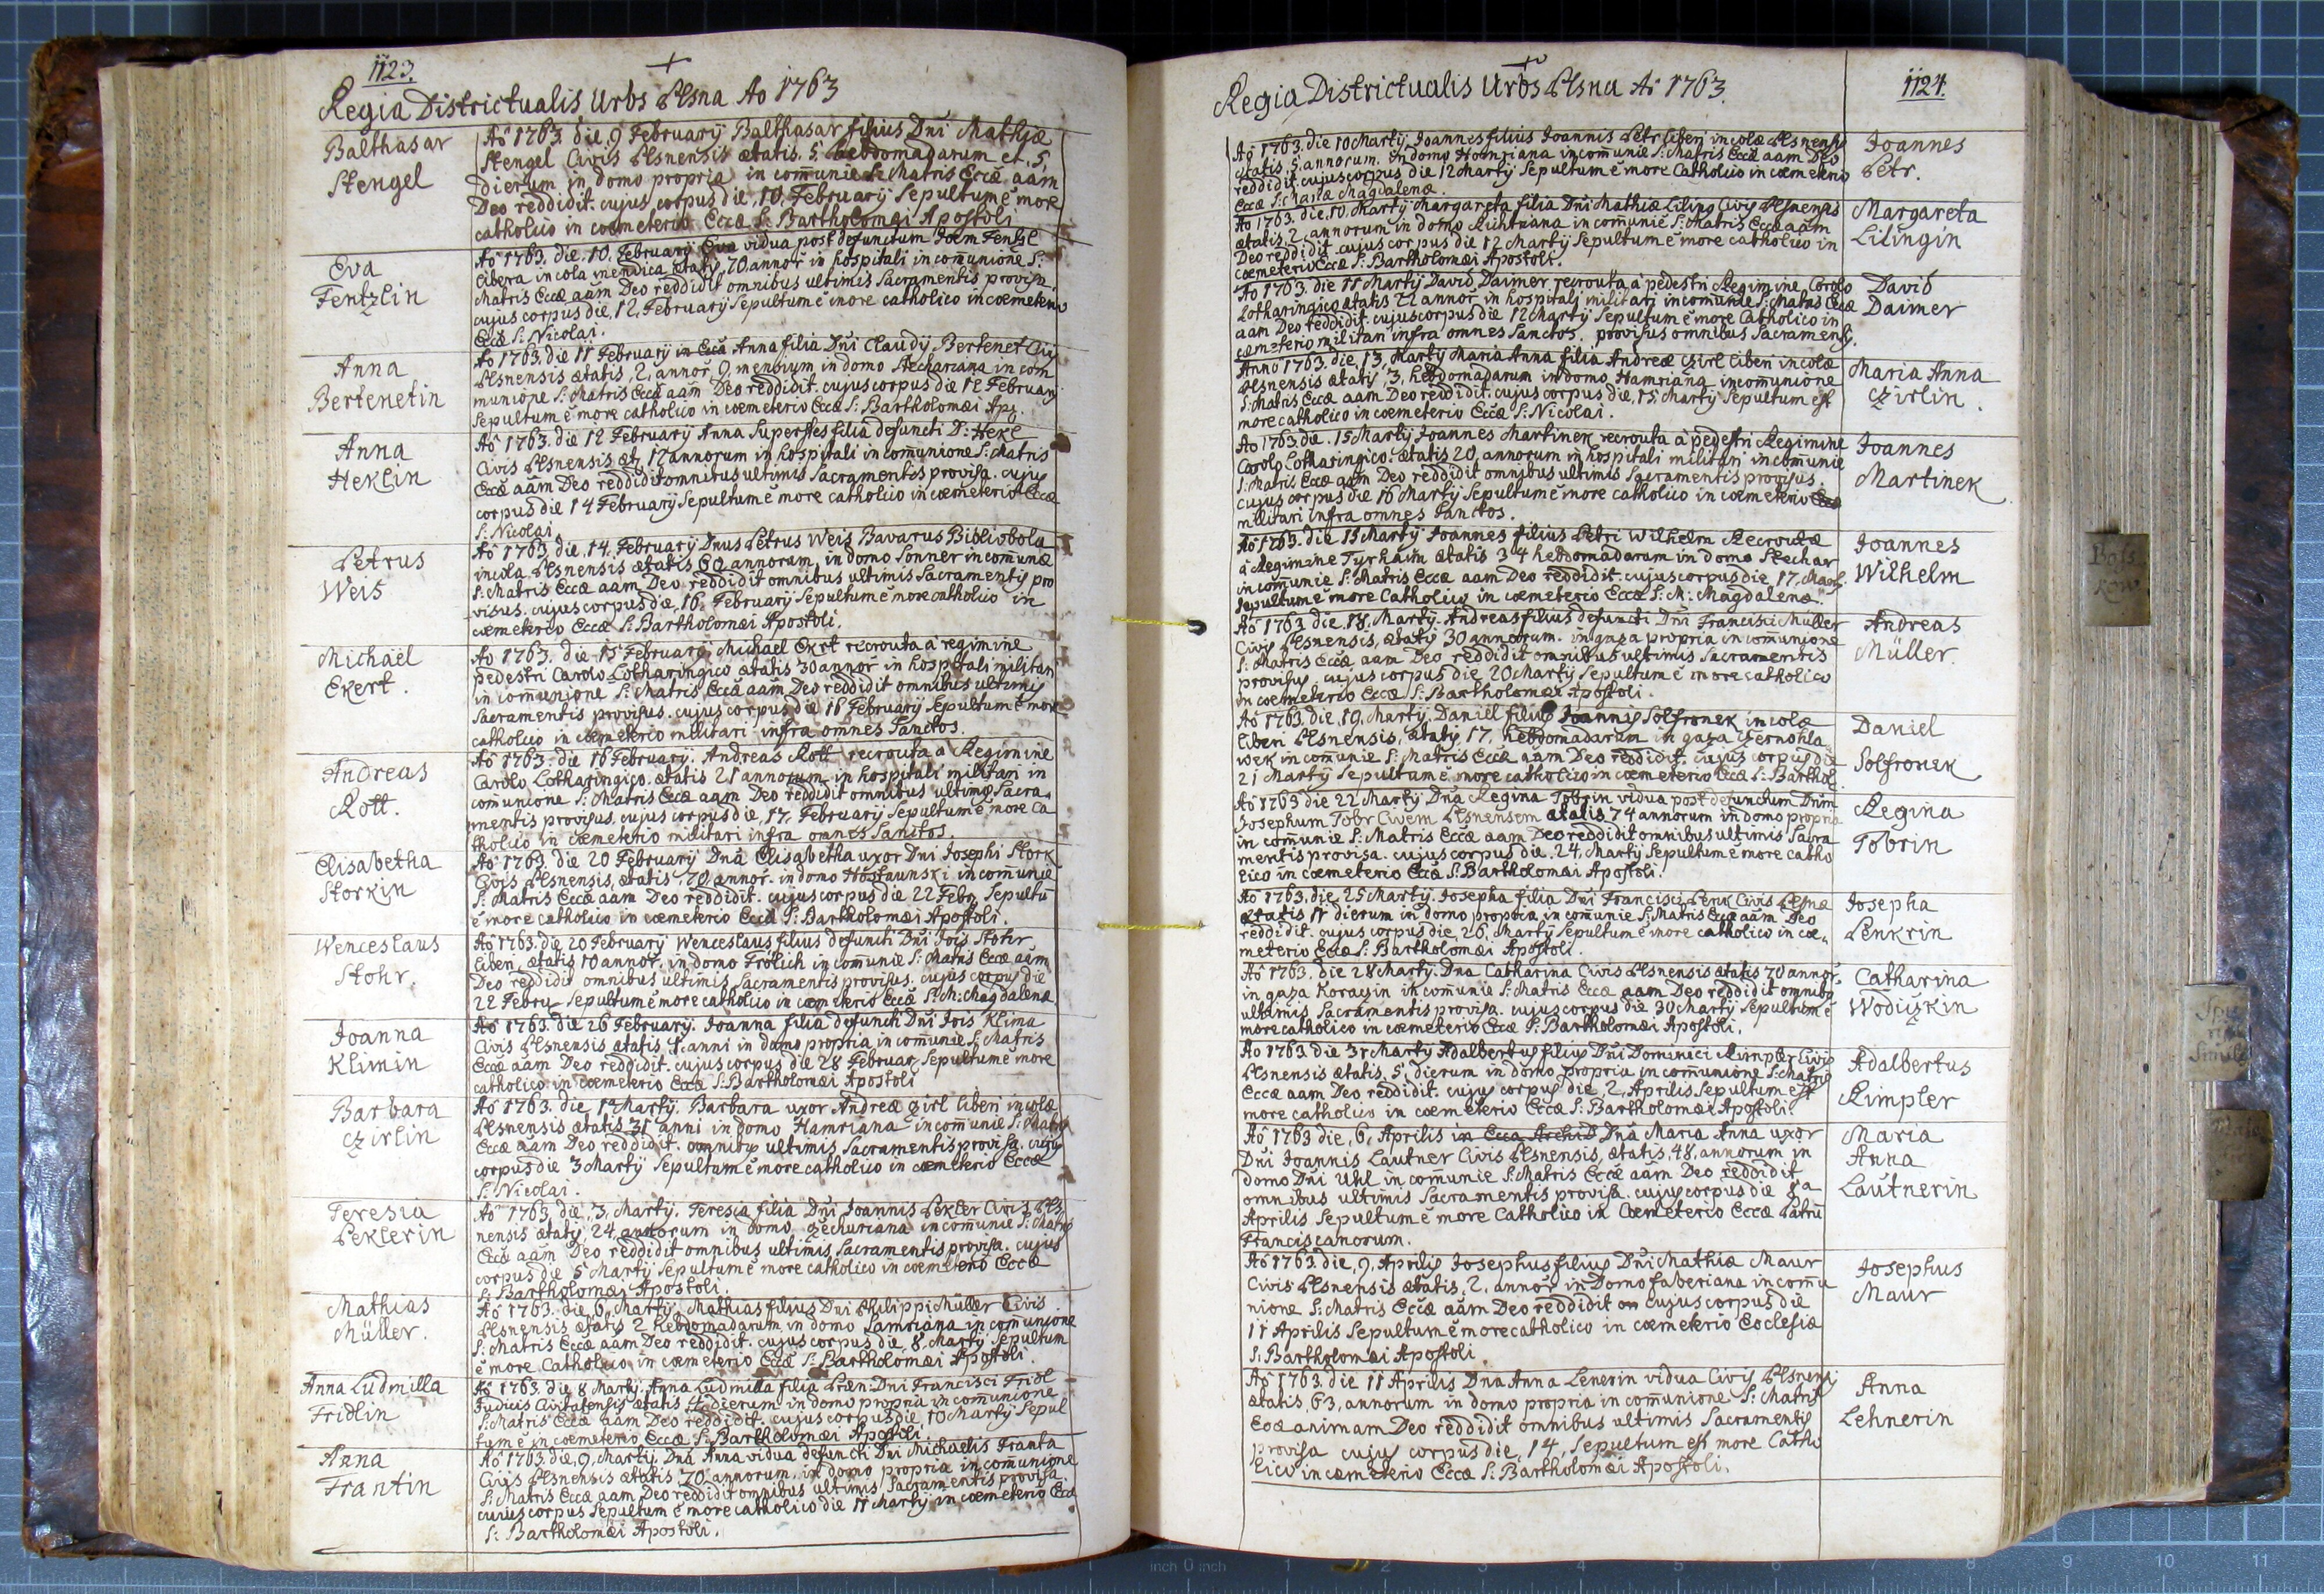 1123.
Regia Districtualis Urbs Plsna Ao 1763
Balthasar
Stengel
Aô 1763. die 9 Februarÿ Balthasar filius Dni Mathiæ
Stengel Civis Plsnensis ætatis. 5. hebdomadarum et. 5.
dierum in domo propria in comunie S: Matris Eccæ aam
Deo reddidit. cujus corpus die, 10. Februarÿ Sepultum ê more
catholico in coemeterio Eccæ S: Bartholomæi Apostoli
Eva
Fentzlin
Aô 1763. die. 10. Februarÿ Eva vidua post defunctum Joem Fentzl
libera incola mendica ætatis, 70. annor in hospitali in comunione S:
Matris Eccæ aam Deo reddidit omnibus ultimis Sacramentis provisa.
cujus corpus die, 12, Februarÿ Sepultum ê more catholico in coemeterio
Eccæ S: Nicolai.
Anna
Bertenetin
Ao 1763. die 11 Februarÿ in Ecca Anna filia Dni Claudÿ Bertenet Civis
Plsnensis ætatis, 2, annor 9 mensium in domo Stechariana in com
munione S: Matris Eccæ aam Deo reddidit. cujus corpus die 12 Februarÿ
Sepultum ê more catholico in coemeterio Eccæ S: Bartholomæi Aps.
Anna
Heklin
Aô 1763. die 12 Februarÿ Anna Superstes filia defuncti D: Hekl
Civis Plsnensis æt. 17 annorum in hospitali in comunione S: Matris
Eccæ aam Deo reddidit omnibus ultimis Sacramentis provisa. cujus
corpus die 14 Februarÿ Sepultum ê more catholico in coemeterio Eccæ
S: Nicolai
Petrus
Weis
Aô 1763. die. 14. Februarÿ Dnus Petrus Weis Bavarus Bibliobola
incola Plsnensis ætatis 60 annorum, in domo Sonner in comunie
S: Matris Eccæ aam Deo reddidit omnibus ultimis Sacramentis pro
visus. cujus corpus die, 16. Februarÿ Sepultum ê more catholico in
coemeterio Eccæ S: Bartholomæi Apostoli.
Michael
Ekert.
Ao 1763. die 15 Februarÿ Michael Ekrt recrouta a regimine
pedestri Carolo Lotharingico ætatis 30 annor in hospitali militari
in comunione S: Matris Eccæ aam Deo reddidit omnibus ultimis
Sacramentis provisus. cujus corpus die 16 Februarÿ Sepultum ê more
catholico in coemeterio militari infra omnes Sanctos.
Andreas
Rott.
Aô 1763. die 16 Februarÿ. Andreas Rott recrouta a Regimine
Carolo Lotharingico. ætatis 21 annorum in hospitali militari in
comunione S: Matris Eccæ aam Deo reddidit omnibus ultimis Sacra
mentis provisus. cujus corpus die, 17. Februarÿ Sepultum ê more ca
tholico in coemeterio militari infra omnes Sanctos.
Elisabetha
Storkin
Aô 1763. die 20 Februarÿ Dna Elisabetha uxor Dni Josephi Stork
Civis Plsnensis, ætatis. 70. annor. in domo Hostaunski in comunie
S: Matris Eccæ aam Deo reddidit. cujus corpus die 22 Febr. Sepultu
ê more catholico in coemeterio Eccæ S: Bartholomæi Apostoli.
Wenceslaus
Stohr.
Aô 1763. die 20 Februarÿ Wenceslaus filius defuncti Dni Jois Stohr
liberi, ætatis 10 annor. in domo Frölich in comunie S: Matris Eccæ aam
Deo reddidit omnibus ultimis Sacramentis provisus. cujus corpus die
22 Febru Sepultum ê more catholico in coemeterio Eccæ S: M: Magdalenæ
Joanna
Klimin
Aô 1763. die 26 Februarÿ. Joanna filia defuncti Dni Jois Klima
Civis Plsnensis ætatis 1. anni in domo propria in comunie S: Matris
Eccæ aam Deo reddidit. cujus corpus die 28 Februar Sepultum ê more
catholico in coemeterio Eccæ S: Bartholomæi Apostoli
Barbara
Czirlin
Aô 1763. die, 1 Martÿ. Barbara uxor Andreæ Zirl liberi incolæ
Plsnensis ætatis 31 anni in domo Hamriana in comunie S: Matris
Eccæ aam Deo reddidit. omnibus ultimis Sacramentis provisa. cujus
corpus die 3 Martÿ Sepultum ê more catholico in coemeterio Eccæ
S: Nicolai.
Teresia
Peklerin
Ao 1763. die, 3. Martÿ. Teresia filia Dni Joannis Pekler Civis Pls
nensis ætatis, 24. annorum in domo in comunie S: Matris
Eccæ aam Deo reddidit omnibus ultimis Sacramentis provisa. cujus
corpus die 5 Martÿ Sepultum ê more catholico in coemeterio Eccæ
S: Bartholomæi Apostoli.
Mathias
Müller.
Aô 1763. die 6. Martÿ. Mathias filius Dni Philippi Müller Civis
Plsnensis ætatis 2 hebdomadarum in domo Lamriana in comunione
S: Matris Eccæ aam Deo reddidit. cujus corpus die, 8. Martÿ Sepultum
ê more Catholico in coemeterio Eccæ S: Bartholomæi Apostoli.
Anna Ludmilla
Fridlin
Aô 1763. die 8 Martÿ. Anna Ludmilla filia Dni Francisci Fridl
Judicis Civitatensis ætatis dierum in domo propria in comunione
S: Matris Eccæ aam Deo reddidit. cujus corpus die, 10 Martÿ Sepul
tum ê in coemeterio Eccæ S: Bartholomæi Apostoli.
Anna
Frantin
Aô 1763. die, 9. Martÿ Dna Anna vidua defuncti Dni Michaelis Franta
Civis Plsnensis ætatis 70 annorum. in domo propria in comunione
S: Matris Eccæ aam Deo reddidit omnibus ultimis Sacramentis provisa.
cujus corpus Sepultum ê more catholico die 11 Martÿ in coemeterio Eccæ
S: Bartholomæi Apostoli.
1124.
Regia Districtualis Urbs Plsna Aô 1763.
Aô 1763. die 10 Martÿ Joannes filius Joannis Petr liberi incolæ Plsnensis
ætatis. 5. annorum. in domo Hamriana in comunie S: Matris Eccæ aam Deo
reddidit. cujus corpus die 12 Martÿ Sepultum ê more Catholico in coemeterio
Eccæ S: Mariæ Magdalenæ.
Joannes
Petr.
Ao 1763. die. 10. Martÿ Margareta filia Dni Mathiæ Liling Civis Plsnensis
ætatis, 2. annorum in domo Richtriana in comunie S: Matris Eccæ aam
Deo reddidit. cujus corpus die 12 Martÿ Sepultum ê more catholico in
coemeterio Eccæ S: Bartholomæi Apostoli.
Margareta
Lilingin
Ao 1763. die 11 Martÿ David Daimer recrouta à pedestri Regimine Carolo
Lotharingico ætatis 22 annor. in hospitali militari in comunie S: Matris Eccæ
aam Deo reddidit. cujus corpus die 12 Martÿ Sepultum ê more Catholico in
coemeterio militari infra omnes Sanctos. provisus omnibus Sacramentis.
David
Daimer
Anno 1763. die, 13, Martÿ Maria Anna filia Andreæ Czirl liberi incolæ
Plsnensis ætatis, 3, hebdomadarum in domo Hamriana in comunione
S: Matris Eccæ aam Deo reddidit. cujus corpus die, 15. Martÿ Sepultum est
more catholico in coemeterio Eccæ S: Nicolai.
Maria Anna
Czirlin.
Ao 1763. die. 15 Martÿ Joannes Martinek recrouta à pedestri Regimine
Carolo Lotharingico. ætatis 20. annorum in hospitali militari in comunie
S: Matris Eccæ aam Deo reddidit omnibus ultimis Sacramentis provisus.
cujus corpus die 16 Martÿ Sepultum ê more catholico in coemeterio Eccæ
militari infra omnes Sanctos.
Joannes
Martinek
Aô 1763. die 15 Martÿ Joannes filius Petri Wilhelm Recroutæ
a Regimine Tyrhaim ætatis 34 hebdomadarum in domo Stechar
in comunie S: Matris Eccæ aam Deo reddidit. cujus corpus die, 17. Mart.
Sepultum ê more Catholico in coemeterio Eccæ S: M: Magdalenæ.
Joannes
Wilhelm
Aô 1763 die. 18. Martÿ. Andreas filius defuncti Dni Francisci Müller
Civis Plsnensis, ætatis 30 annorum. in gaza propria in comunione
S: Matris Eccæ aam Deo reddidit omnibus ultimis Sacramentis
provisus. cujus corpus die 20 Martÿ Sepultum ê more catholico
in coemeterio Eccæ S: Bartholomæi Apostoli.
Andreas
Müller.
Aô 1763. die, 19. Martÿ. Daniel filius Joannis Solfronek incolæ
liberi Plsnensis, ætatis 17. hebdomadarum in gaza Czernohla
wek in comunie S: Matris Eccæ aam Deo reddidit. cujus corpus die
21 Martÿ Sepultum ê more catholico in coemeterio Eccæ S: Barthol.
Daniel
Solfronek
Aô 1763 die 22 Martÿ Dna Regina Tobrin vidua post defunctum Dnum
Josephum Tobr Civem Plsnensem ætatis 74 annorum in domo propria
in comunie S: Matris Eccæ aam Deo reddidit omnibus ultimis Sacra
mentis provisa. cujus corpus die. 24. Martÿ Sepultum ê more catho
lico in coemeterio Eccæ S: Bartholomæi Apostoli.
Regina
Tobrin
Aô 1763. die, 25 Martÿ. Josepha filia Dni Francisci Penk Civis Plsnæ
ætatis 11 dierum in domo propria in comunie S: Matris Eccæ aam Deo
reddidit. cujus corpus die, 26. Martÿ Sepultum ê more catholico in coe
meterio Eccæ S: Bartholomæi Apostoli.
Josepha
Penkrin
Aô 1763. die 28 Martÿ. Dna Catharina Civis Plsnensis ætatis 70 annor.
in gaza Korazin in comunie S: Matris Eccæ aam Deo reddidit omnibus
ultimis Sacramentis provisa. cujus corpus die 30 Martÿ Sepultum ê
more catholico in coemeterio Eccæ S: Bartholomæi Apostoli.
Catharina
Wodiczkin
Ao 1763. die 31 Martÿ Adalbertus filius Dni Dominici Rimpler Civis
Plsnensis ætatis, 5, dierum in domo propria in comunione S: Matris
Eccæ aam Deo reddidit. cujus corpus die, 2, Aprilis Sepultum est
more catholico in coemeterio Eccæ S: Bartholomæi Apostoli.
Adalbertus
Rimpler
Aô 1763 die, 6, Aprilis in Ecca Archid Dna Maria Anna uxor
Dni Joannis Lautner Civis Plsnensis, ætatis, 48, annorum in
domo Dni Uhl in comunie S: Matris Eccæ aam Deo reddidit
omnibus ultimis Sacramentis provisa. cujus corpus die 8a
Aprilis Sepultum ê more Catholico in Coemeterio Eccæ Patru
Franciscanorum.
Maria
Anna
Lautnerin
Aô 1763. die, 9, Aprilis Josephus filius Dni Mathiæ Maur
Civis Plsnensis ætatis, 2, annor in Domo faberiana in comu
nione S: Matris Eccæ aam Deo reddidit om cujus corpus die
11 Aprilis Sepultum ê more catholico in coemeterio Ecclesiæ
S: Bartholomæi Apostoli
Josephus
Maur
Aô 1763. die 11 Aprilis Dna Anna Lenerin vidua Civis Plsnensis
ætatis, 63, annorum in domo propria in comunione S: Matris
Eccæ animam Deo reddidit omnibus ultimis Sacramentis
provisa cujus corpus die, 14, Sepultum est more Catho
lico in coemeterio Eccæ S: Bartholomæi Apostoli.
Anna
Lehnerin
inch 0 inch
1
2
3
4
5
6
7
8
9
10
11